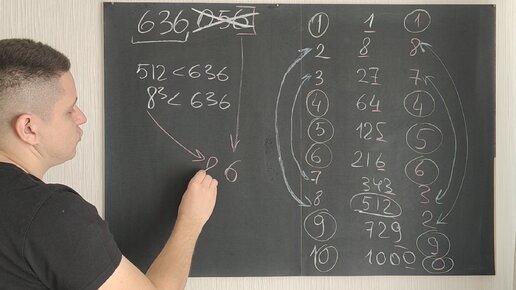 636 056
512 < 636
8³ < 636
8 6
1 1 1
2 8 8
3 27 7
4 64 4
5 125 5
6 216 6
7 343 3
8 512 2
9 729 9
10 1000 0